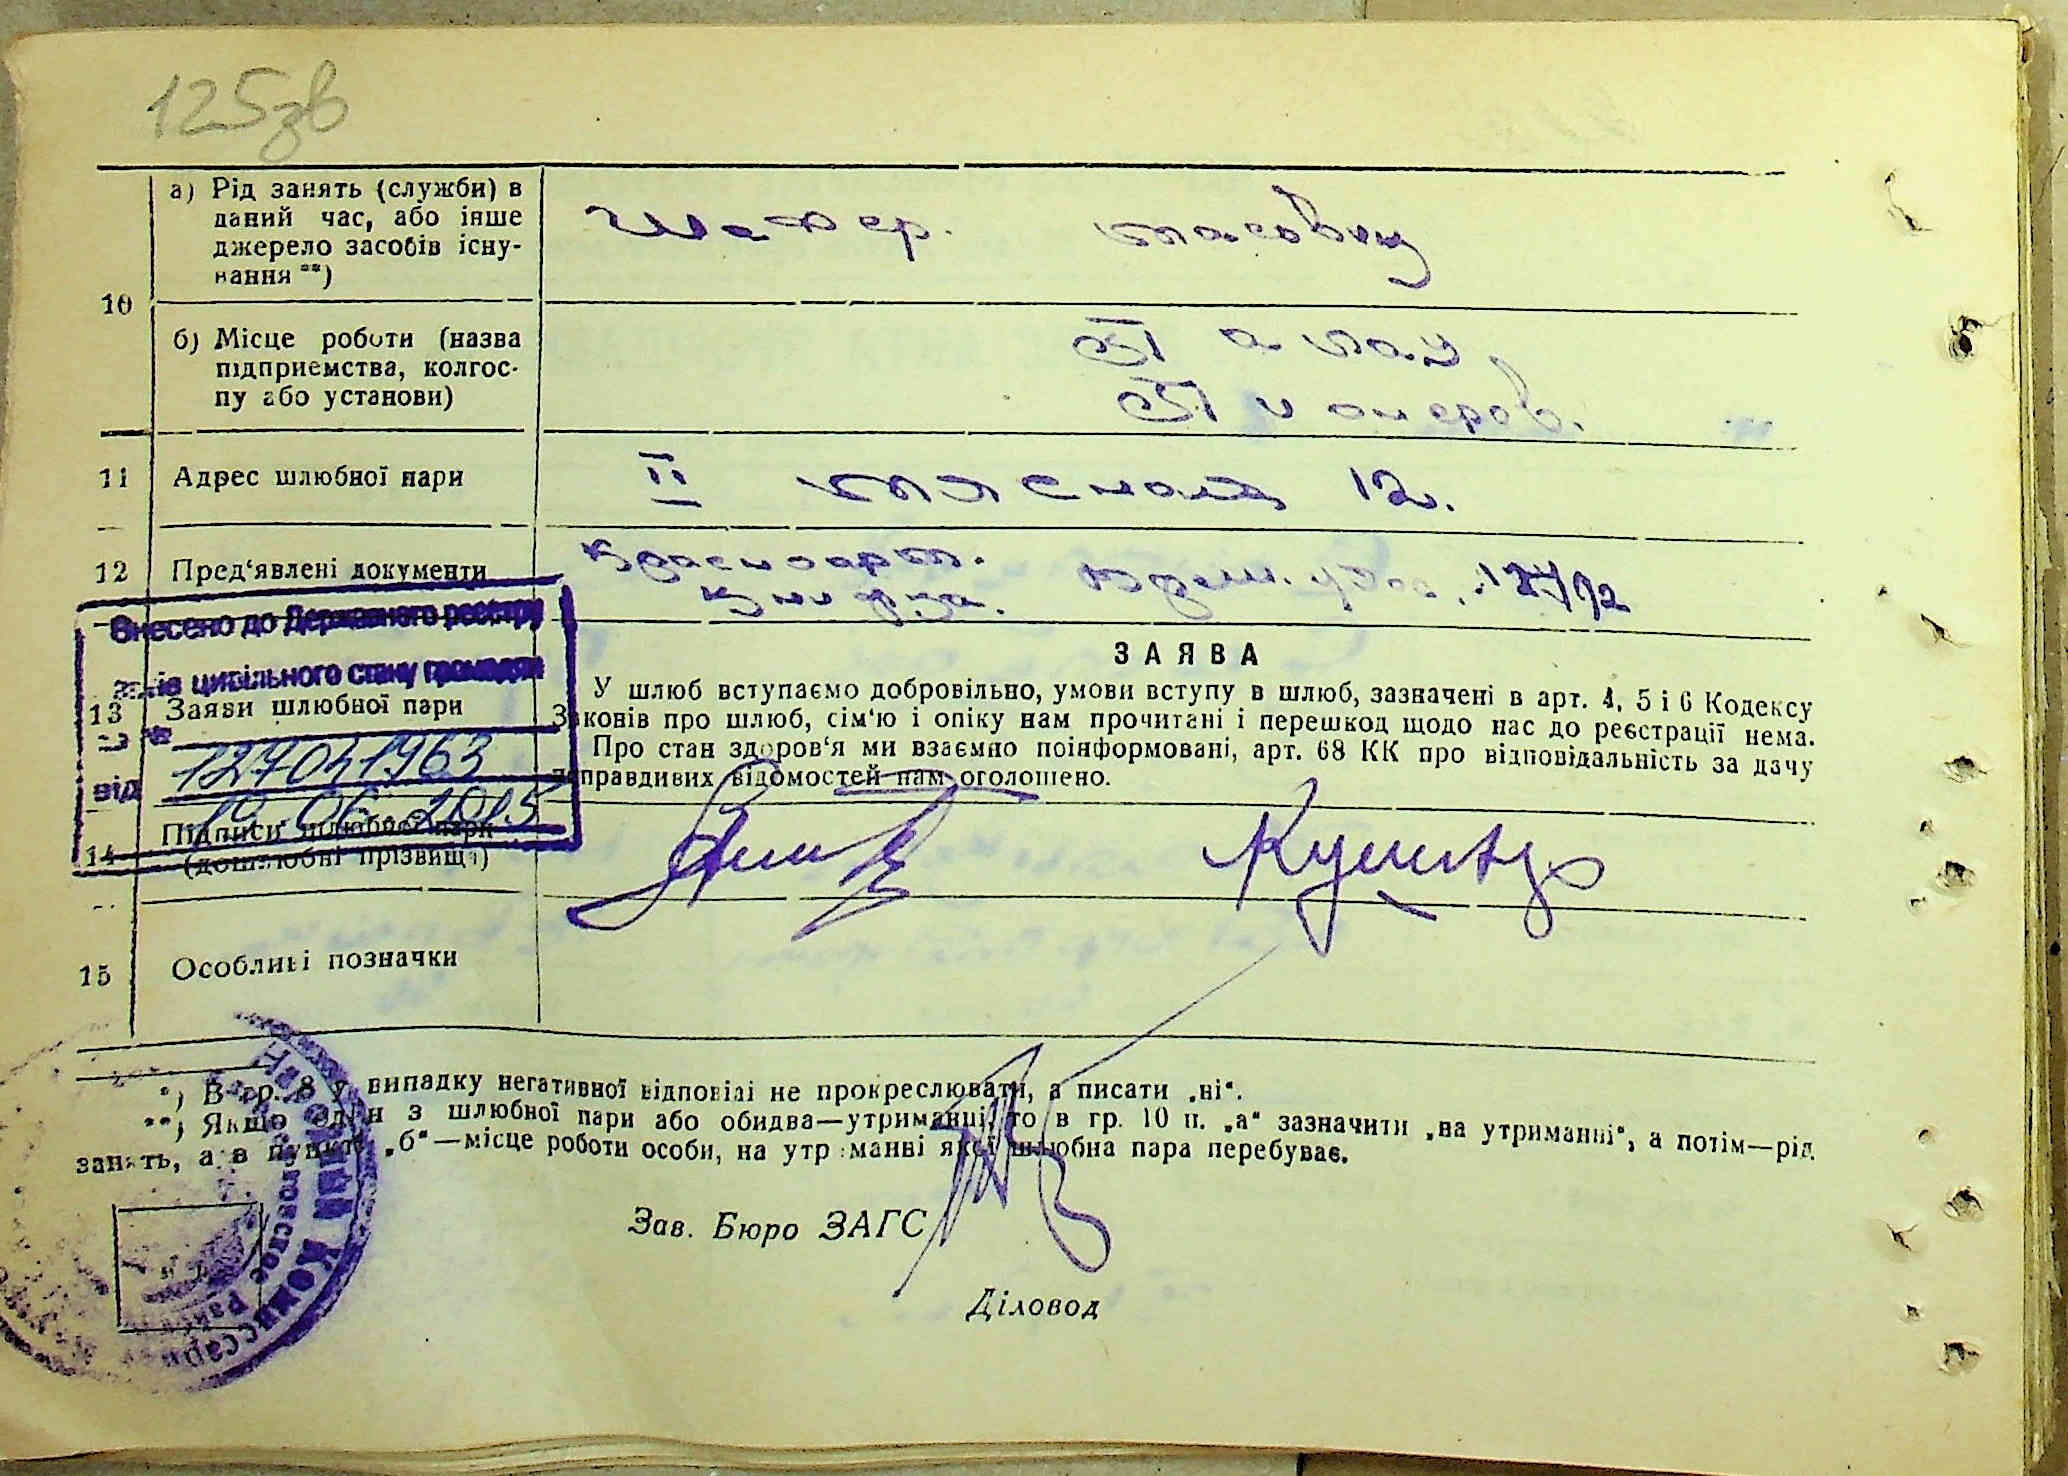 125зв
10
а) Рід занять (служби) в
даний час, або інше
джерело засобів існу-
вання **)
Шофер.
б) Місце роботи (назва
підприємства, колгос-
пу або установи)
11 Адрес шлюбної пари
II 12.
12 Пред'явлені документи
Красноарм.
книжка.
Внесено до Державного реєстру
актів цивільного стану громадян
за №
127041963
від
19.06.2015
13 Заяви шлюбної пари
ЗАЯВА
У шлюб вступаємо добровільно, умови вступу в шлюб, зазначені в арт. 4, 5 і 6 Кодексу
Законів про шлюб, сім'ю і опіку нам прочитані і перешкод щодо нас до реєстрації нема.
Про стан здоров'я ми взаємно поінформовані, арт. 68 КК про відповідальність за дачу
неправдивих відомостей нам оголошено.
14 Підписи шлюбної пари
(дошлюбні прізвища)
15 Особливі позначки
*) В гр. 8 у випадку негативної відповіді не прокреслювати, а писати „ні“.
**) Якщо один з шлюбної пари або обидва—утриманці, то в гр. 10 п. „а“ зазначити „на утриманні“, а потім—рід
занять, а в пункті „б“—місце роботи особи, на утриманні якої шлюбна пара перебуває.
Зав. Бюро ЗАГС
Діловод